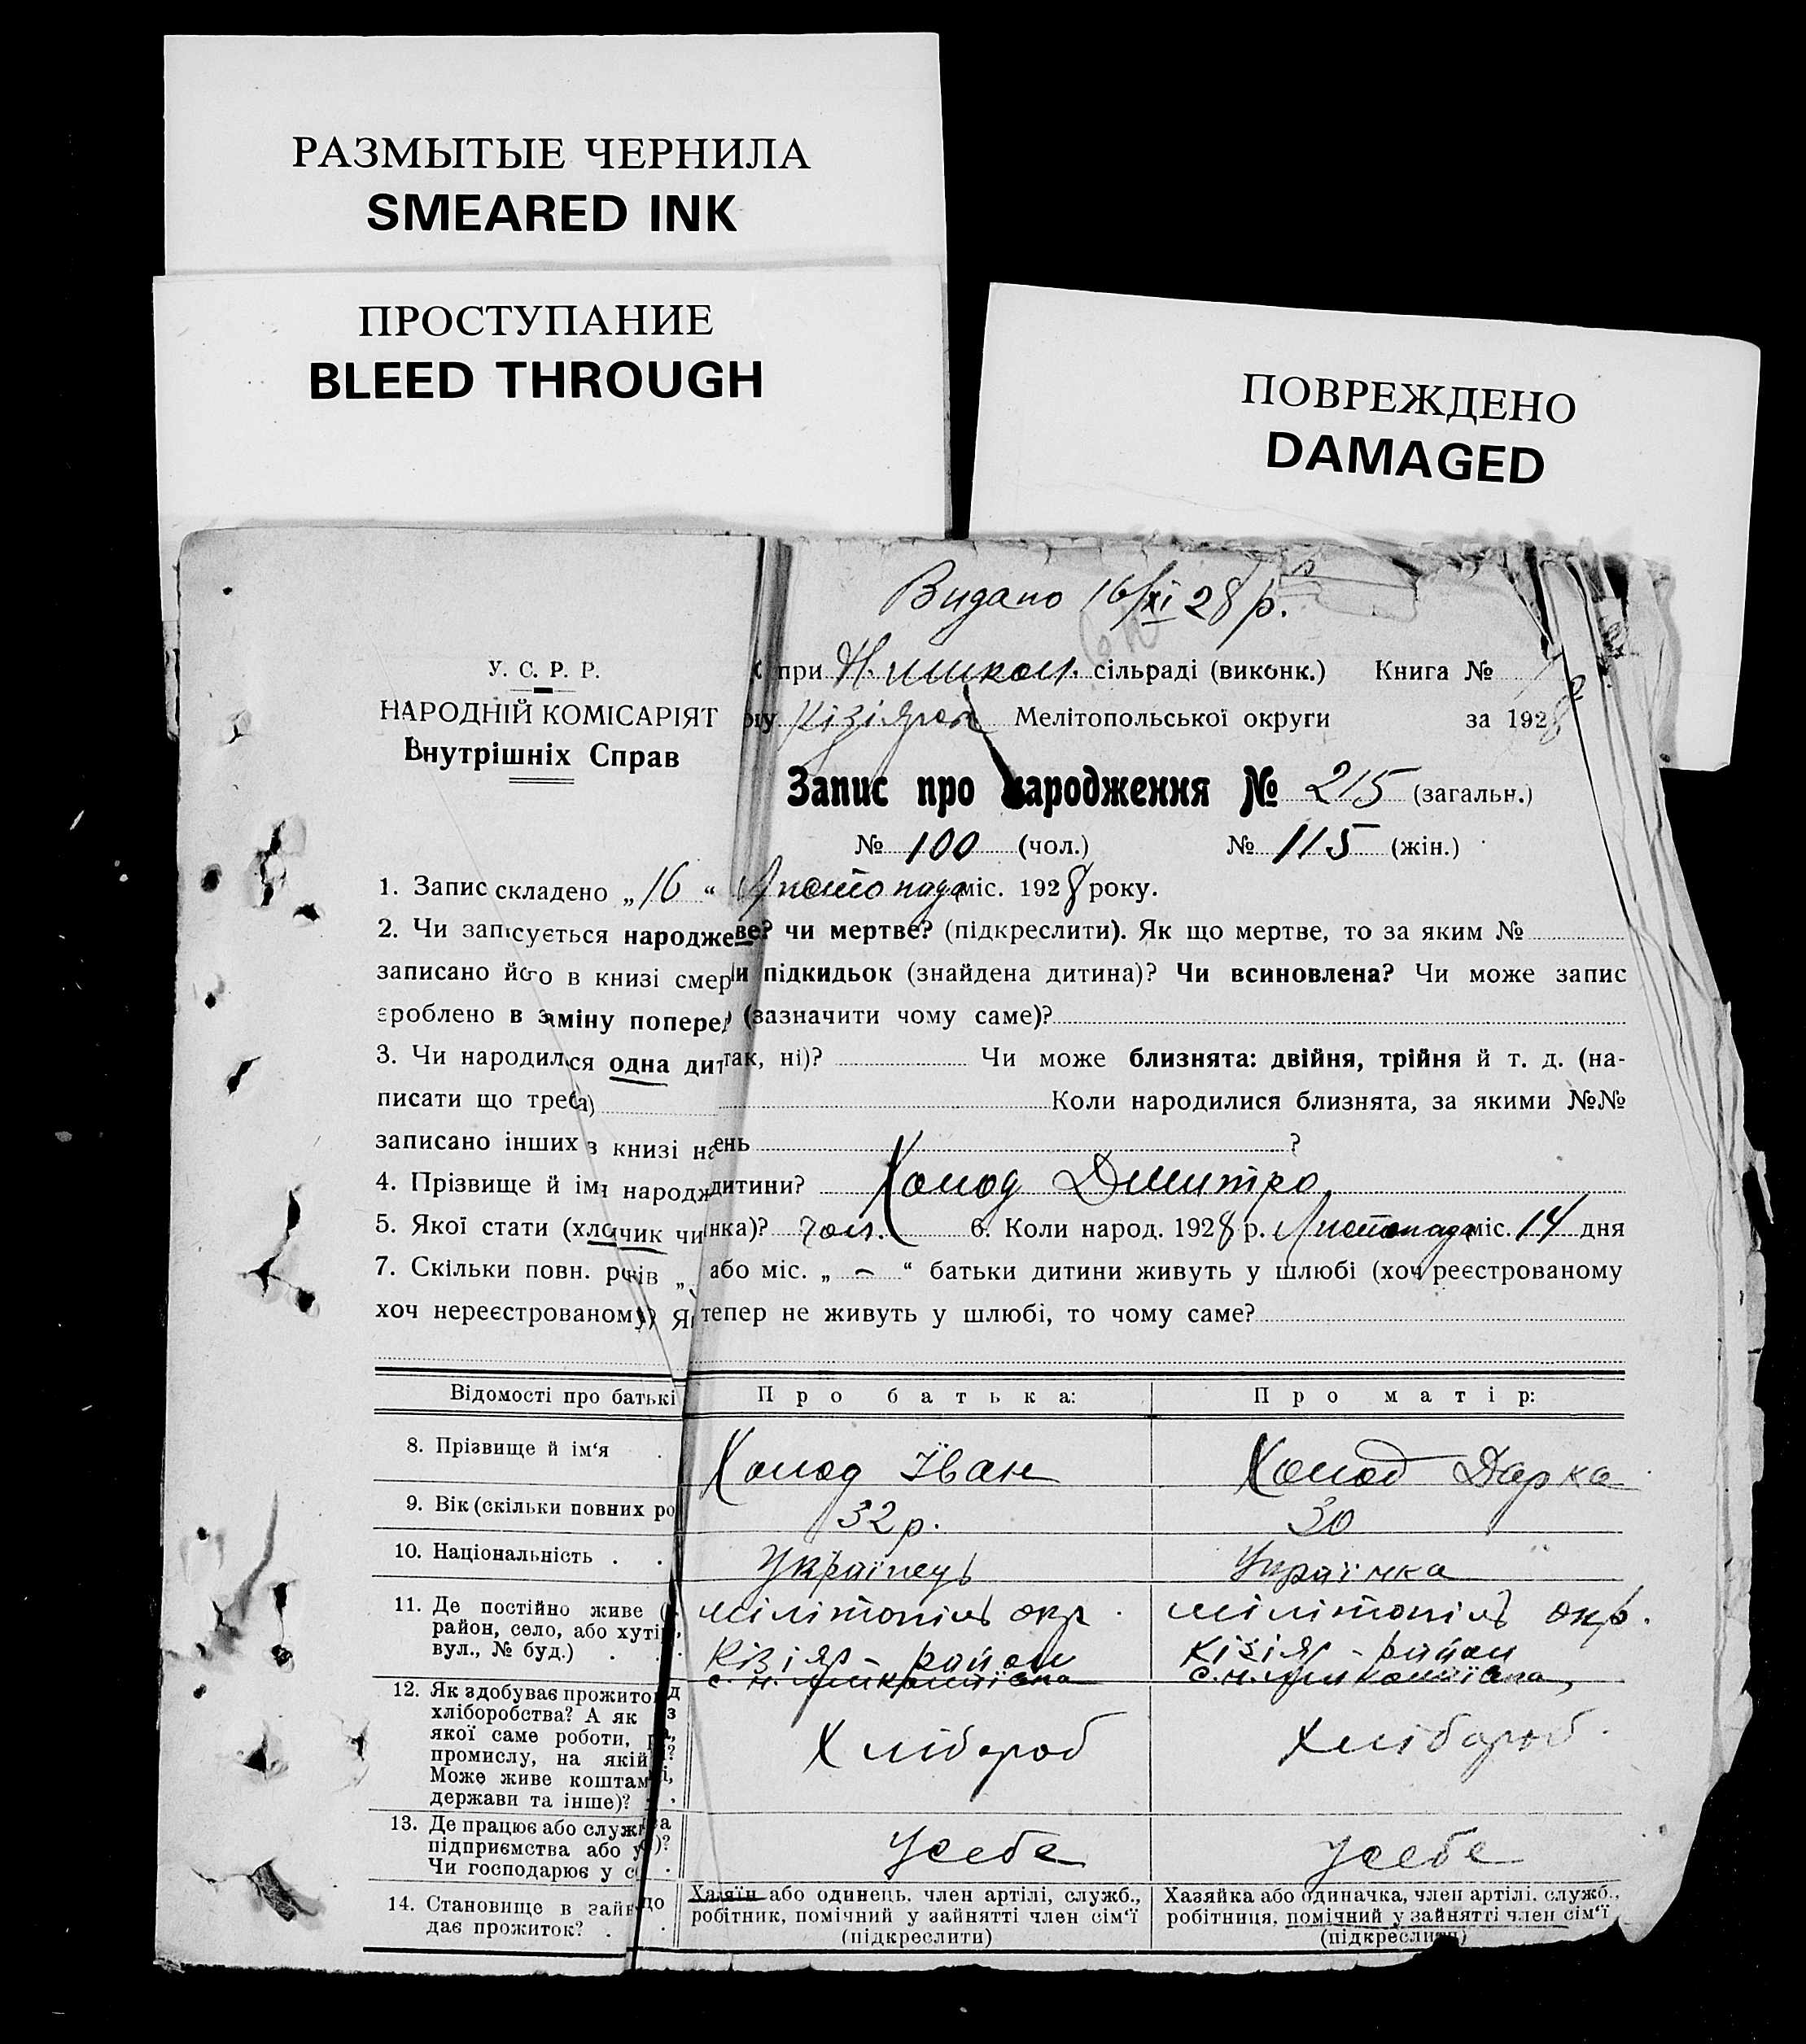 РАЗМЫТЫЕ ЧЕРНИЛА
SMEARED INK
ПРОСТУПАНИЕ
BLEED THROUGH
ПОВРЕЖДЕНО
DAMAGED
Видано 16/XI 28 р.
У. С. Р. Р.
НАРОДНІЙ КОМІСАРІЯТ
Внутрішніх Справ
при сільраді (виконк.) Книга №
Кізіяр Мелітопольської округи за 1928
Запис про народження № 215 (загальн.)
№ 100 (чол.) № 115 (жін.)
1. Запис складено „16“ Листопада міс. 1928 року.
2. Чи записується народже ве? чи мертве? (підкреслити). Як що мертве, то за яким №
записано його в книзі смер и підкидьок (знайдена дитина)? Чи всиновлена? Чи може запис
зроблено в заміну попере (зазначити чому саме)?
3. Чи народилася одна дит так, ні)? Чи може близнята: двійня, трійня й т. д. (на-
писати що треба) Коли народилися близнята, за якими №№
записано інших в книзі на ень ?
4. Прізвище й ім'я народж дитини? Холод Дмитро
5. Якої стати (хлопчик чи нка)? Чол. 6. Коли народ. 1928 р. Листопада міс. 14 дня
7. Скільки повн. років „ або міс. „ – “ батьки дитини живуть у шлюбі (хоч реєстрованому
хоч нереєстрованому) Я тепер не живуть у шлюбі, то чому саме?
Відомості про батькі Про батька: Про матір:
8. Прізвище й ім'я Холод Іван Холод Дарка
9. Вік (скільки повних ро 32 р. 30
10. Національність . . Українець Українка
11. Де постійно живе ( Мілітопіль окр. Мілітопіль окр.
район, село, або хутір,
вул., № буд.) . . Кізіяр – район Кізіяр – район
12. Як здобуває прожито д
хліборобства? А як з
якої саме роботи, р а, Хлібороб Хлібороб
промислу, на якій ?
Може живе коштам і,
держави та інше)? .
13. Де працює або служи а
підприємства або у )? У себе У себе
Чи господарює у с .
14. Становище в зайн що Хазяїн або одинець, член артілі, служб., Хазяйка або одиначка, член артілі, служб.,
дає прожиток? . . робітник, помічний у зайнятті член сім'ї робітниця, помічний у зайнятті член сім'ї
(підкреслити) (підкреслити)